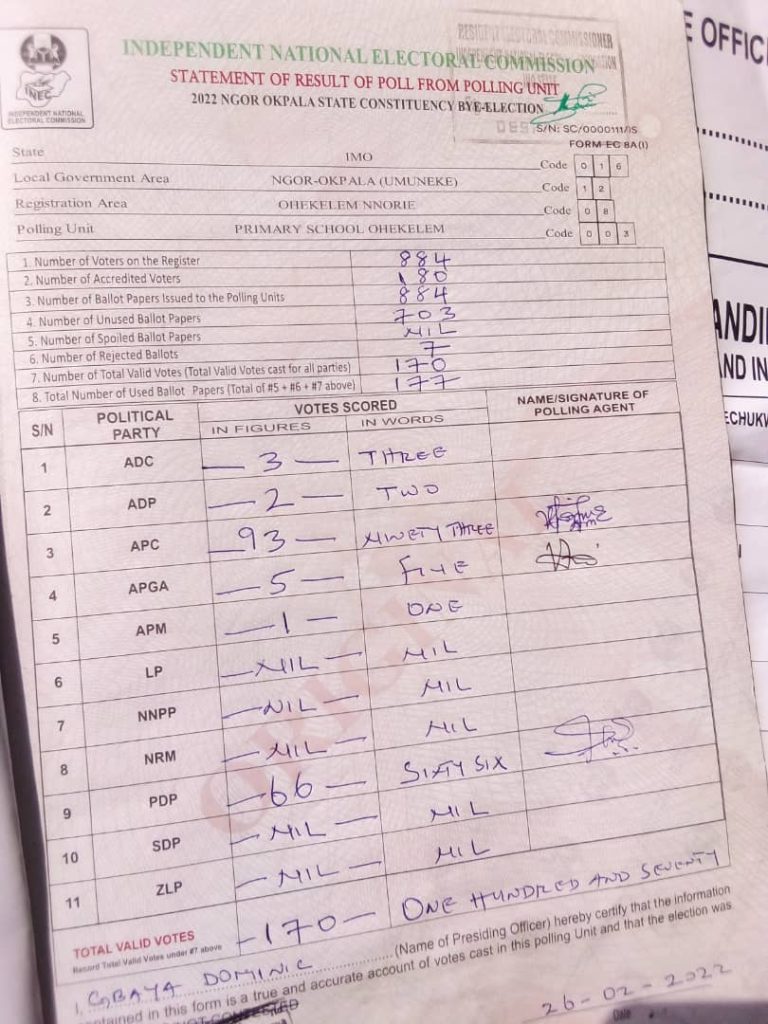 RESIDENT ELECTORAL COMMISSIONER
INDEPENDENT NATIONAL ELECTORAL COMMISSION
STATEMENT OF RESULT OF POLL FROM POLLING UNIT
2022 NGOR OKPALA STATE CONSTITUENCY BYE-ELECTION
INEC
INDEPENDENT NATIONAL
ELECTORAL COMMISSION
S/N: SC/0000111/IS
FORM EC 8A(I)
State IMO Code 0 1 6
Local Government Area NGOR-OKPALA (UMUNEKE) Code 1 2
Registration Area OHEKELEM NNORIE Code 0 8
Polling Unit PRIMARY SCHOOL OHEKELEM Code 0 0 3
1. Number of Voters on the Register 884
2. Number of Accredited Voters 180
3. Number of Ballot Papers Issued to the Polling Units 884
4. Number of Unused Ballot Papers 703
5. Number of Spoiled Ballot Papers NIL
6. Number of Rejected Ballots 7
7. Number of Total Valid Votes (Total Valid Votes cast for all parties) 170
8. Total Number of Used Ballot Papers (Total of #5 + #6 + #7 above) 177
S/N POLITICAL PARTY VOTES SCORED NAME/SIGNATURE OF POLLING AGENT
IN FIGURES IN WORDS
1 ADC — 3 — THREE
2 ADP — 2 — TWO
3 APC — 93 — NINETY THREE
4 APGA — 5 — FIVE
5 APM — 1 — ONE
6 LP — NIL — NIL
7 NNPP — NIL — NIL
8 NRM — NIL — NIL
9 PDP — 66 — SIXTY SIX
10 SDP — NIL — NIL
11 ZLP — NIL — NIL
TOTAL VALID VOTES — 170 — ONE HUNDRED AND SEVENTY
Record Total Valid Votes under #7 above
I, GBAYA DOMINIC (Name of Presiding Officer) hereby certify that the information
contained in this form is a true and accurate account of votes cast in this polling Unit and that the election was
26-02-2022
Date
ORIGINAL
E OFFIC
ANDI
AND IN
ECHUKW